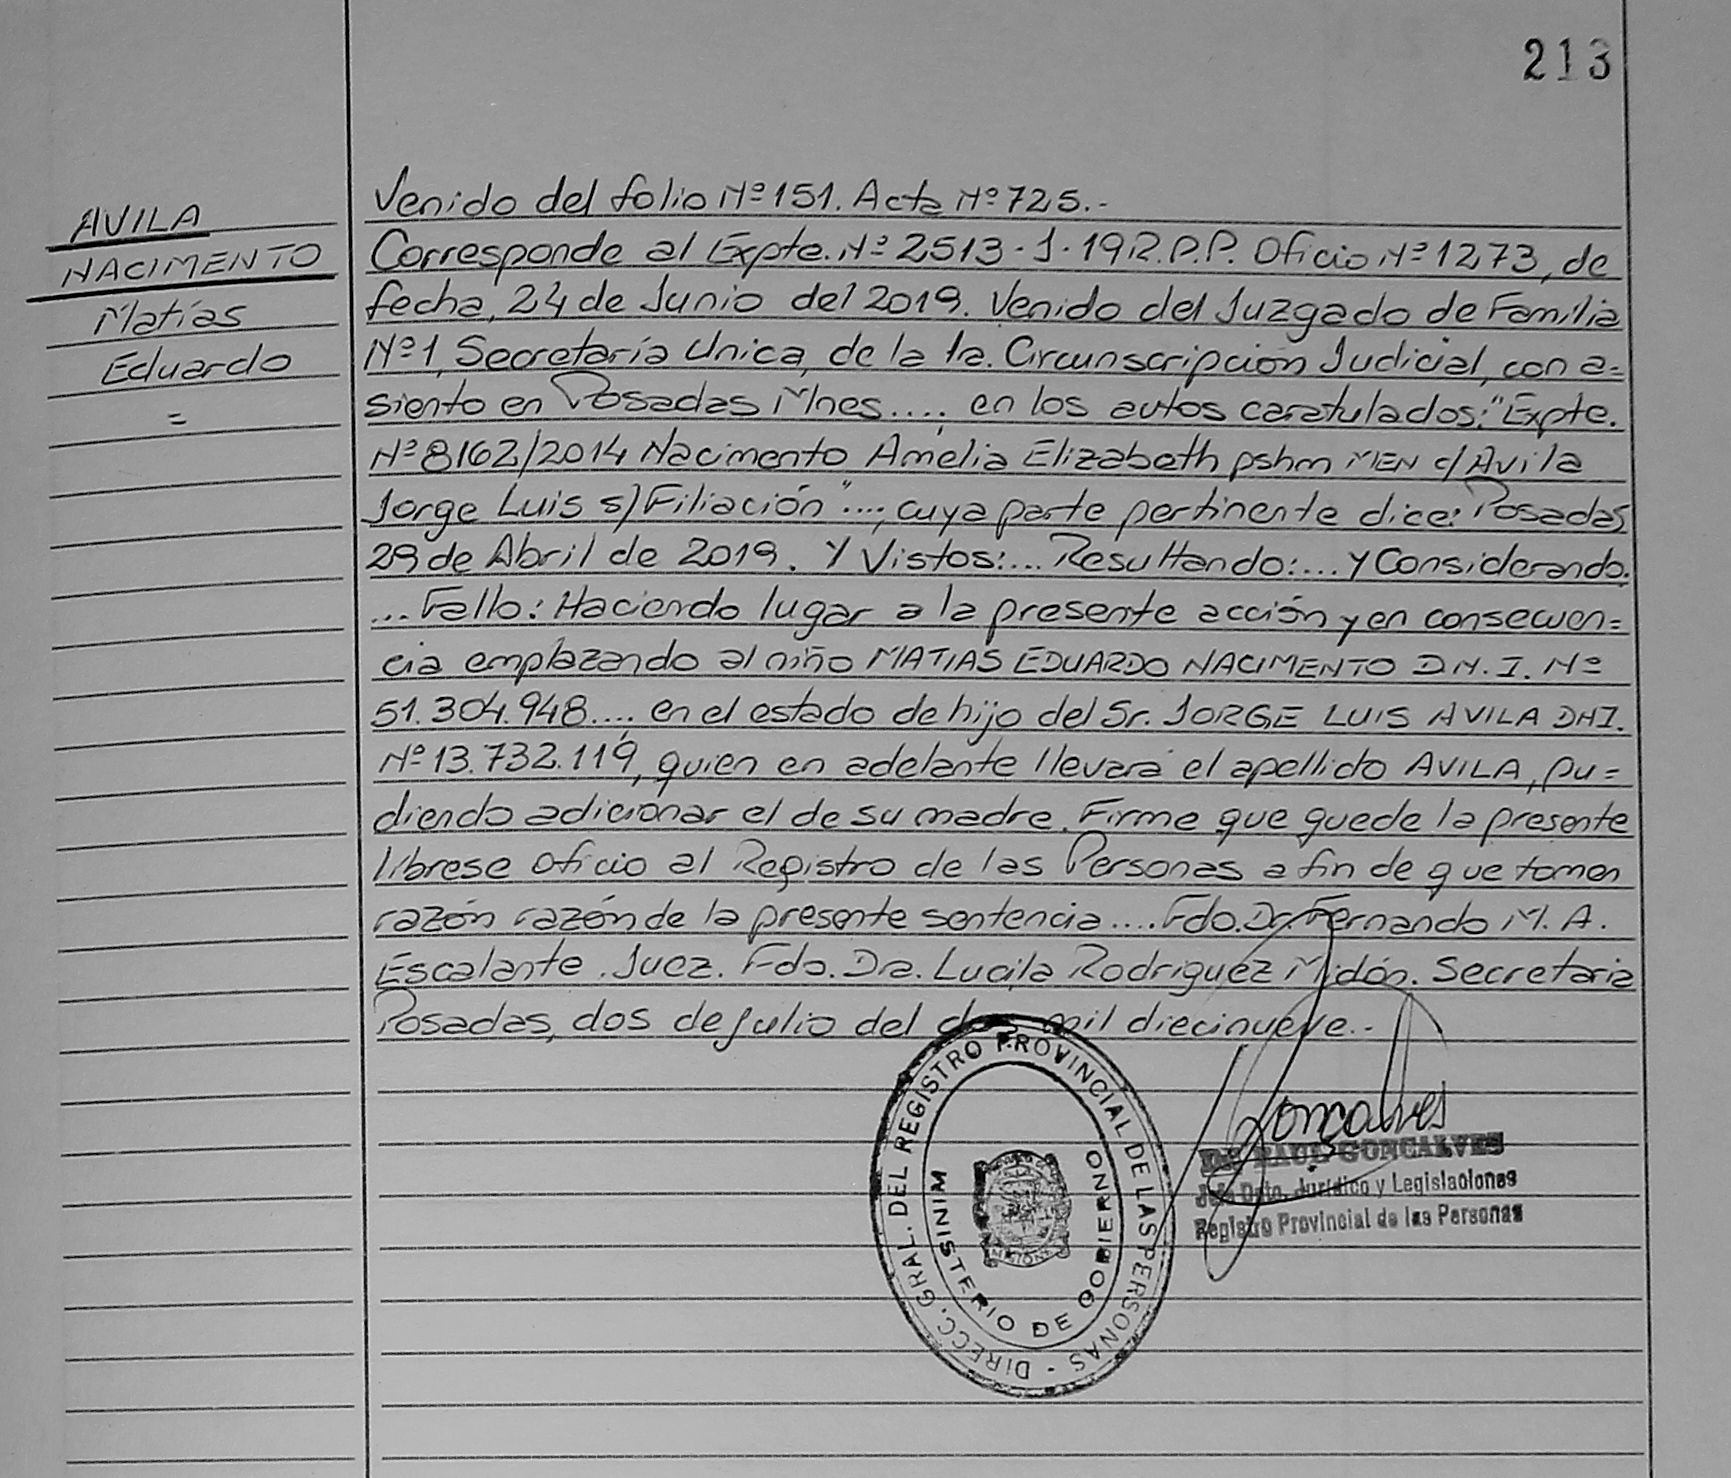 213
AVILA
NACIMENTO
Matías
Eduardo
=
Venido del folio Nº 151. Acta Nº 725.-
Corresponde al Expte. Nº 2513-J-19 R.P.P. Oficio Nº 1273, de
fecha, 24 de Junio del 2019. Venido del Juzgado de Familia
Nº 1, Secretaría Unica, de la 1a. Circunscripción Judicial, con a=
siento en Posadas Mnes.... en los autos caratulados: "Expte.
Nº 8162/2014 Nacimento Amelia Elizabeth pshm MEN c/ Avila
Jorge Luis s/ Filiación"...., cuya parte pertinente dice: Posadas,
29 de Abril de 2019. Y Vistos:... Resultando:... y Considerando:
... Fallo: Haciendo lugar a la presente acción y en consecuen=
cia emplazando al niño MATIAS EDUARDO NACIMENTO D.N.I. Nº
51.304.948...., en el estado de hijo del Sr. JORGE LUIS AVILA DNI.
Nº 13.732.119, quien en adelante llevará el apellido AVILA, pu=
diendo adicionar el de su madre. Firme que quede la presente
librese oficio al Registro de las Personas a fin de que tomen
razón razón de la presente sentencia.... Fdo. Dr. Fernando M. A.
Escalante. Juez. Fdo. Dra. Lucila Rodriguez Midón. Secretaria
Posadas, dos de julio del dos mil diecinueve.-
DIRECC. GRAL. DEL REGISTRO PROVINCIAL DE LAS PERSONAS -
MINISTERIO DE GOBIERNO
MISIONES
Gonçalves
Dr. RAUL GONCALVES
Jefe Dpto. Jurídico y Legislaciones
Registro Provincial de las Personas